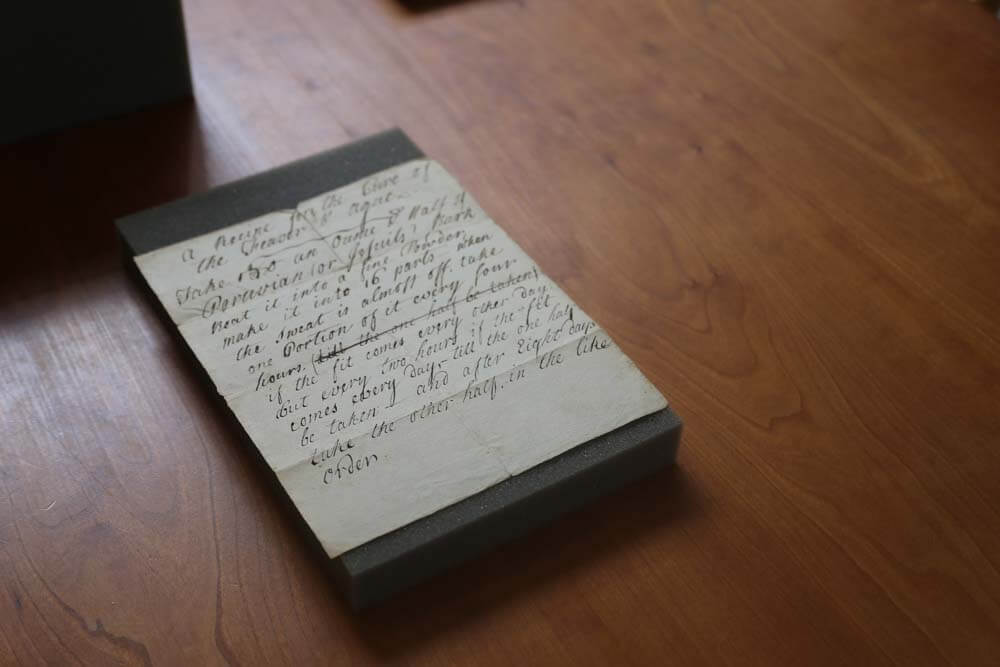 a Recipe for the Cure of
the Feavor & Ague.
Take an ounce & Half of
Peruvian (or Jesuits) Bark
Beat it into a fine Powder
make it into 16 parts when
the sweat is almost off, take
one Portion of it every four
hours. (till the one half be taken)
if the fit comes every other day
but every two hours if the fit
comes every day, till the one half
be taken – and after Eight days
take the other half, in the like
Order.